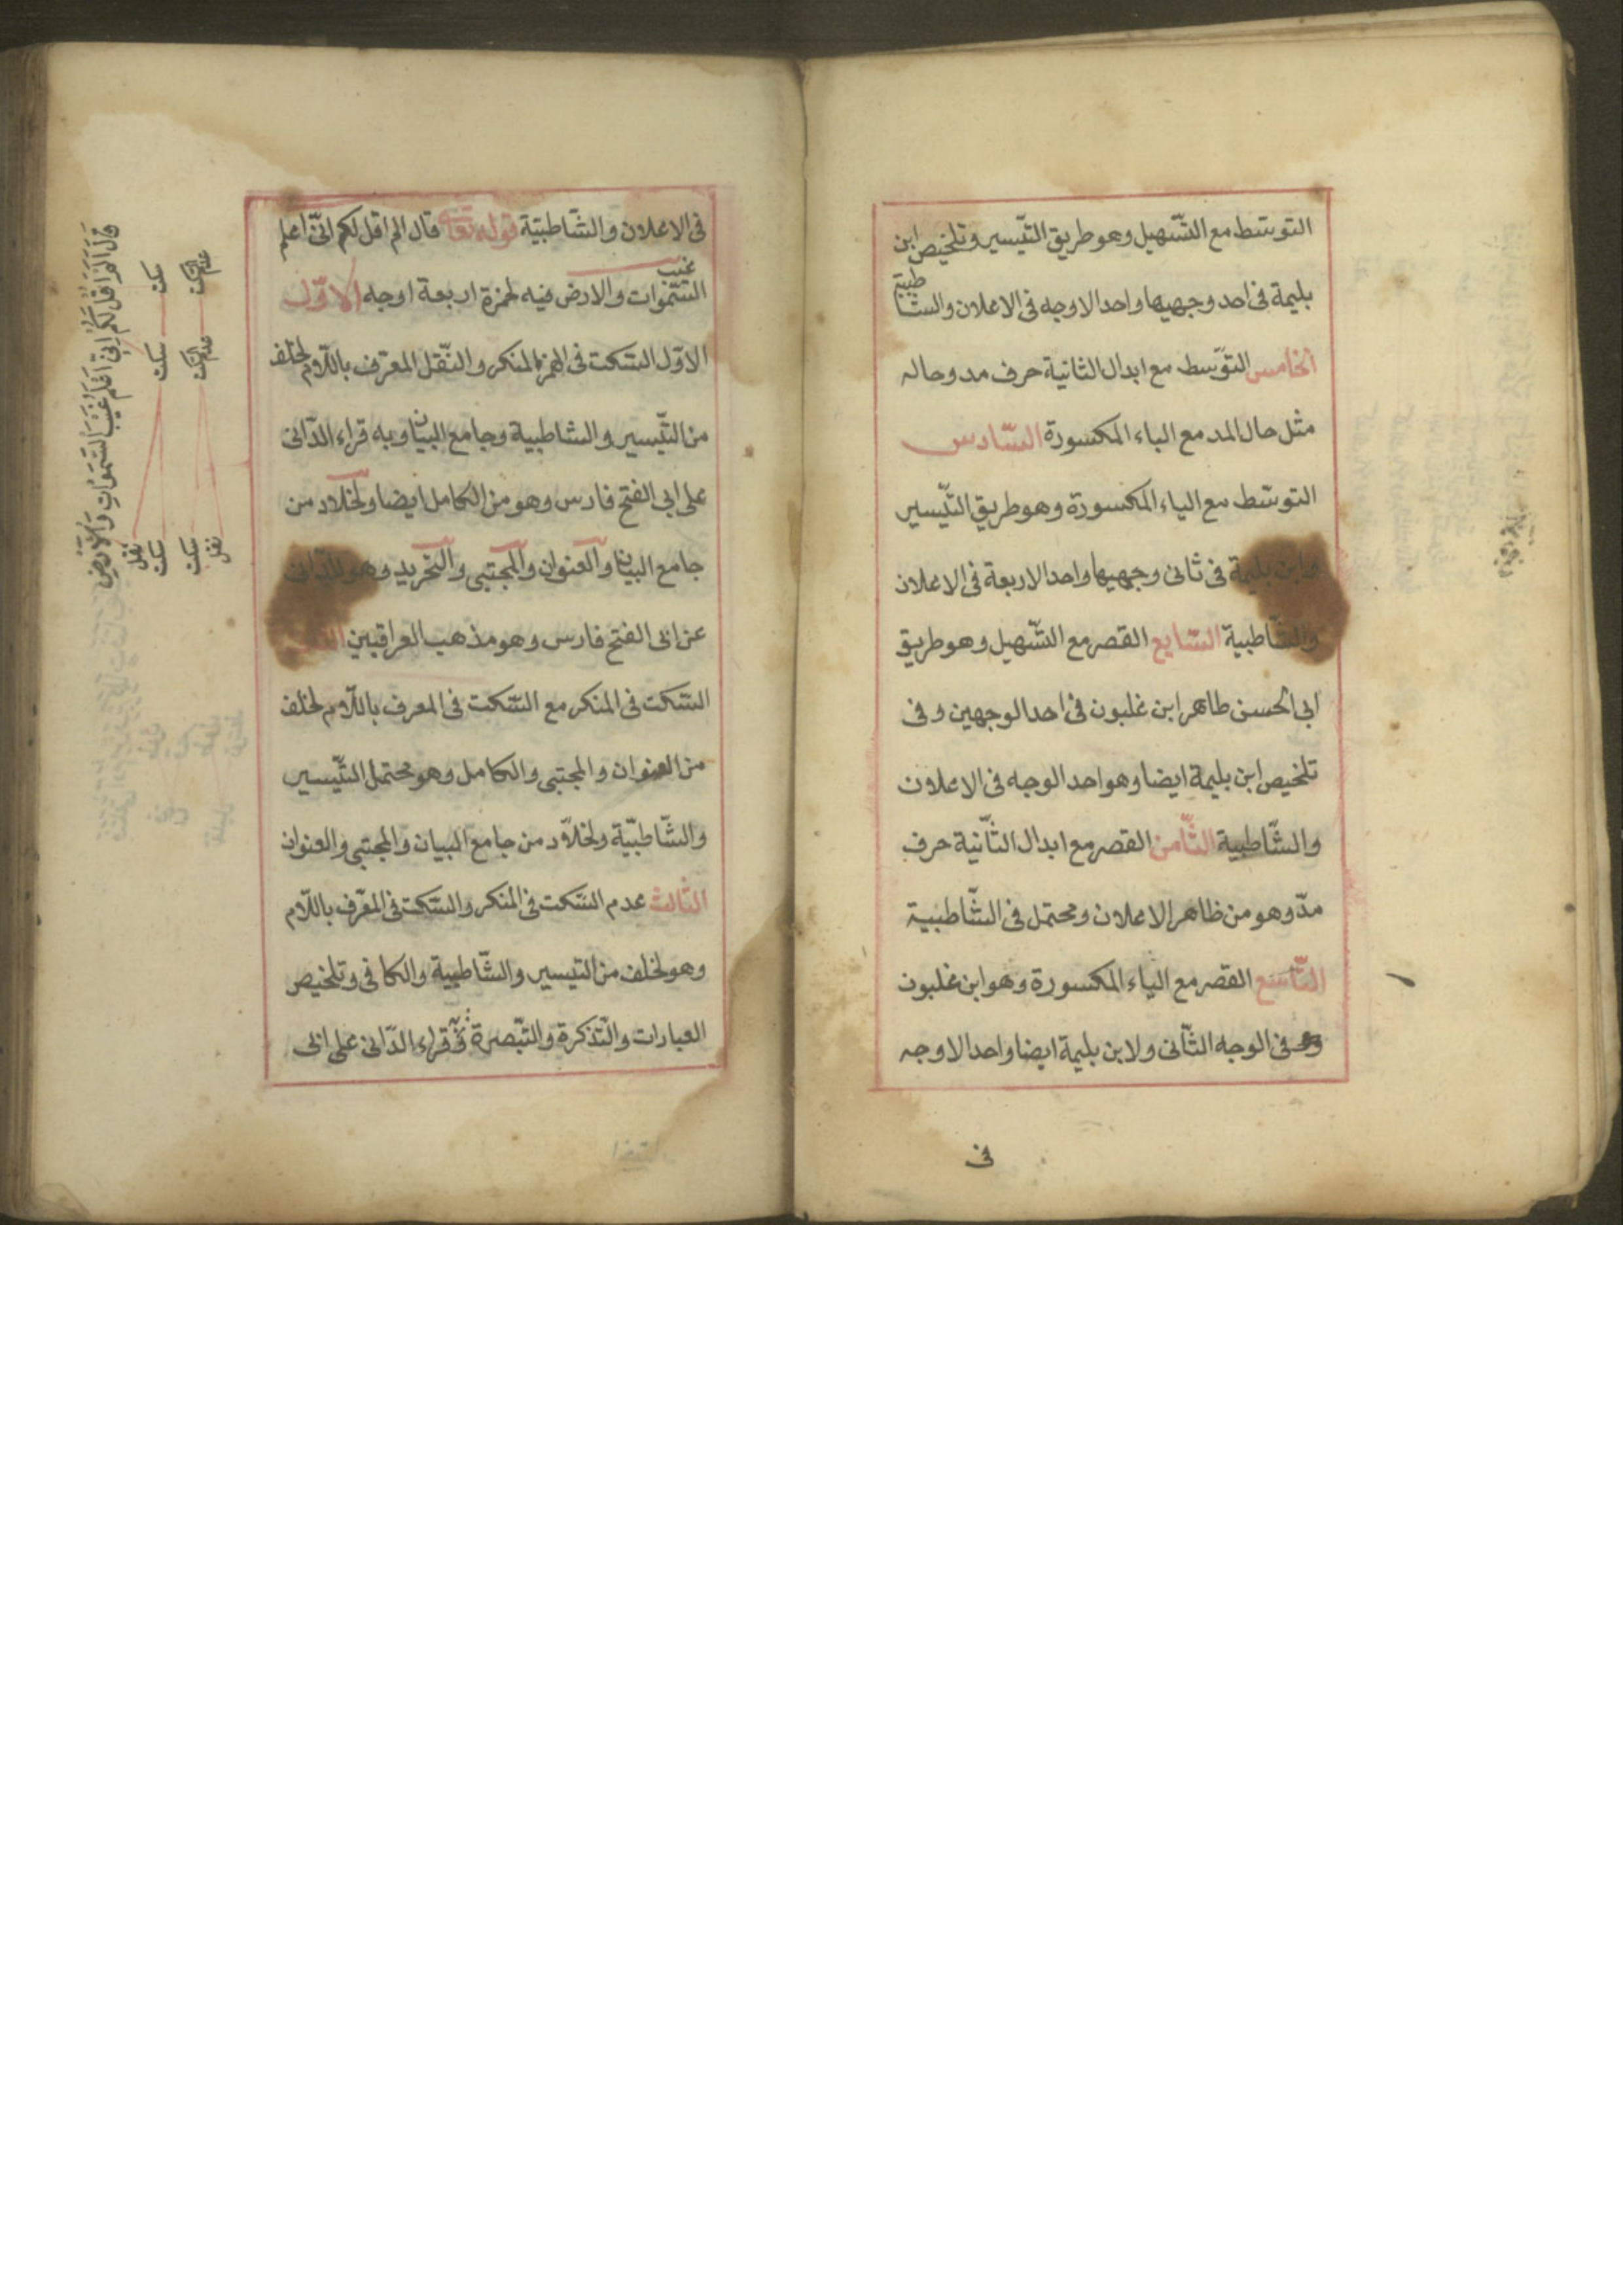 التوسط مع التسهيل وهو طريق التيسير وتلخيص ابن
بليمة فى احد وجهيها واحد الاوجه فى الاعلان والشاطبية
الخامس التوسط مع ابدال الثانية حرف مد وحاله
مثل حال المد مع الياء المكسورة السادس
التوسط مع الياء المكسورة وهو طريق التيسير
وابن بليمة فى ثانى وجهيها واحد الاربعة فى الاعلان
والشاطبية السابع القصر مع التسهيل وهو طريق
ابى الحسن طاهر ابن غلبون فى احد الوجهين وفى
تلخيص ابن بليمة ايضا وهو احد الوجه فى الاعلان
والشاطبية الثامن القصر مع ابدال الثانية حرف
مدّ وهو من ظاهر الاعلان ومحتمل فى الشاطبية
التاسع القصر مع الياء المكسورة وهو ابن غلبون
فى الوجه الثانى ولابن بليمة ايضا واحد الاوجه
فى
فى الاعلان والشاطبية قوله تعالى قال الم اقل لكم انى اعلم
غيب
السموات والارض فيه لحمزة اربعة اوجه الاول
الاول السكت فى المنكر والنقل المعرف باللام لخلف
من التيسير والشاطبية وجامع البيان وبه قراء الدانى
على ابى الفتح فارس وهو من الكامل ايضا ولخلاد من
جامع البيان والعنوان والمجتبى والتجريد وهو للدانى
عن ابى الفتح فارس وهو مذهب العراقيين
السكت فى المنكر مع السكت فى المعرف باللام لخلف
من العنوان والمجتبى والكامل وهو محتمل التيسير
والشاطبية ولخلاد من جامع البيان والمجتبى والعنوان
الثالث عدم السكت فى المنكر والسكت فى المعرف باللام
وهو لخلف من التيسير والشاطبية والكافى وتلخيص
العبارات والتذكرة والتبصرة قراء الدانى على ابى
قال الم اقل لكم انى اعلم غيب السموات والارض
سكت سكت نقل سكت
عدم السكت عدم السكت سكت نقل